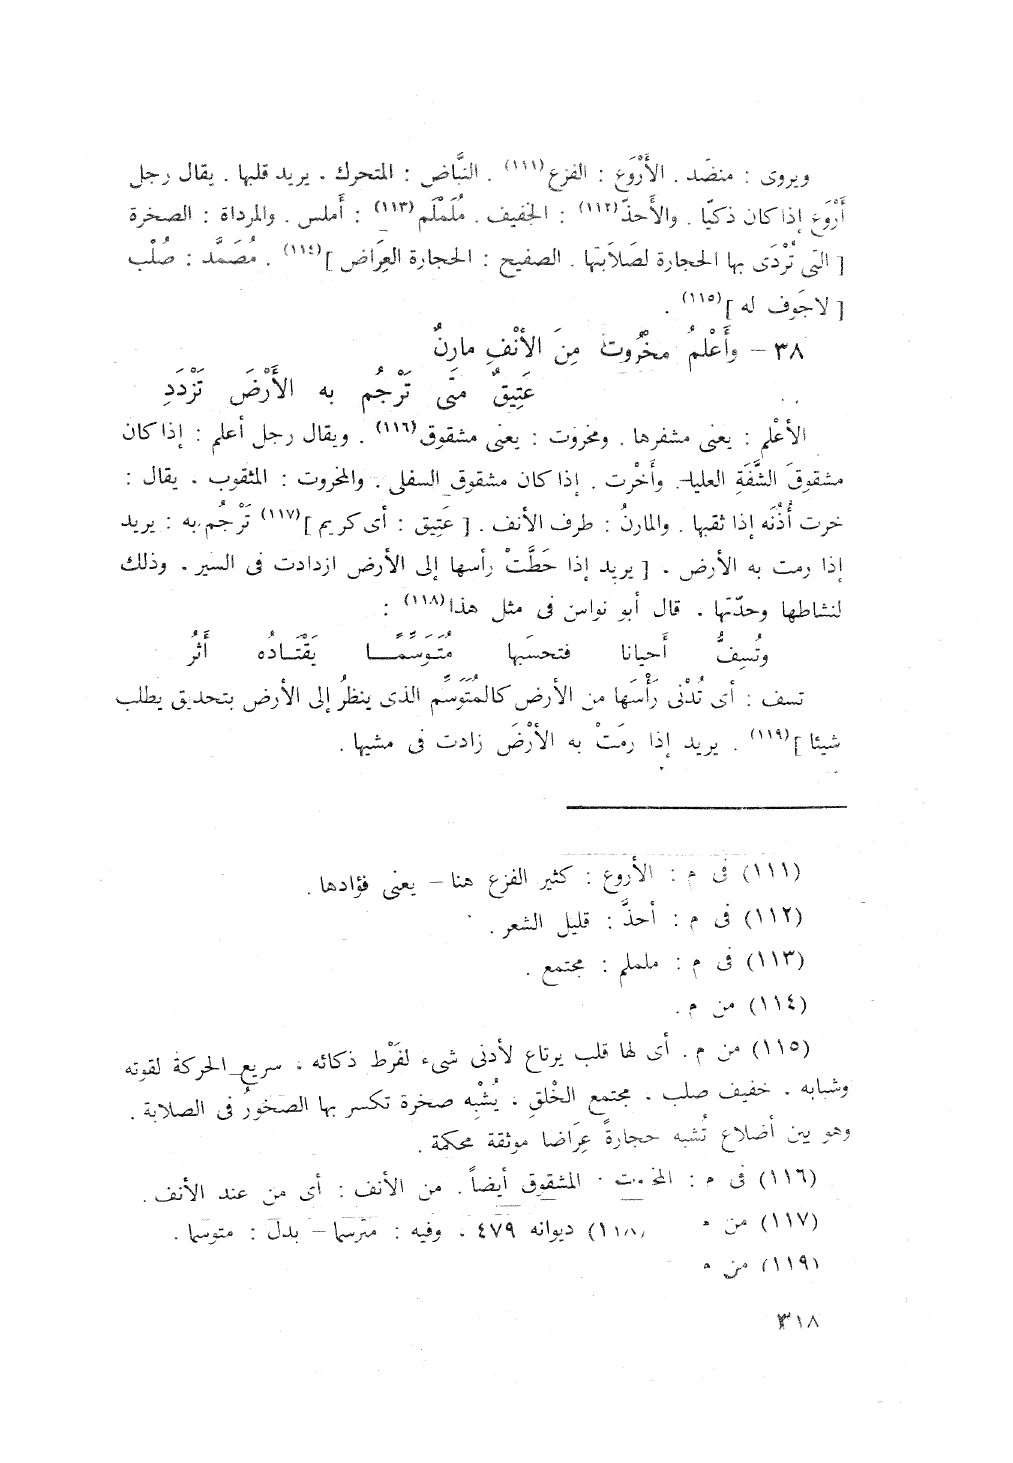 ويروى : منضّد . الأَرْوَع : الفزع(١١١) . النبَّاض : المتحرك . يريد قلبها . يقال رجل
أَرْوَع إذا كان ذكيّا . والأَحذّ(١١٢) : الخفيف . مُلَمْلَم(١١٣) : أَملس . والمرداة : الصخرة
[ التى تُرْدَى بها الحجارة لصَلاَبتها . الصفيح : الحجارة العِرَاض ](١١٤) . مُصَمَّد : صُلْب
[ لا جَوف له ](١١٥) .
٣٨ – وأَعْلمُ مخْرُوت مِنَ الأنْفِ مارِنٌ
عَتِيقٌ متَى تَرْجُم به الأَرْضَ تَزْدَدِ
الأعْلم : يعنى مشفرها . ومخروت : يعنى مشقوق(١١٦) . ويقال رجل أعلم : إذا كان
مشقوقَ الشَّفَةِ العليا . وأَخْرت . إذا كان مشقوق السفلى . والمخروت : المثقوب . يقال :
خرت أُذُنَه إذا ثقبها . والمارنُ : طرف الأنف . [ عَتِيق : أى كريم ](١١٧) تَرْجُم به : يريد
إذا رمت به الأرض . [ يريد إذا حَطَّتْ رأسها إلى الأرض ازدادت فى السير . وذلك
لنشاطها وحدّتها . قال أبو نواس فى مثل هذا(١١٨) :
وتُسِفُّ أَحيانا فتحسَبها مُتَوَسِّمًا يَقْتَادُه أَثرُ
تسف : أى تُدْنى رَأْسَها من الأرض كالمُتَوَسِّم الذى ينظرُ إلى الأرض بتحديق يطلب
شيئا ](١١٩) . يريد إذا رمَتْ به الأَرْضَ زادت فى مشيها .
(١١١) فى م : الأروع : كثير الفزع هنا – يعنى فؤادها .
(١١٢) فى م : أحذَّ : قليل الشعر .
(١١٣) فى م : ململم : مجتمع .
(١١٤) من م .
(١١٥) من م . أى لها قلب يرتاع لأدنى شىء لفَرْط ذكائه ، سريع الحركة لقوته
وشبابه . خفيف صلب ، مجتمع الخْلقِ ، يُشْبِه صخرة تكسر بها الصخورُ فى الصلابة .
وهو بين أضلاع تُشبه حجارةً عِرَاضا موثقة محكمة .
(١١٦) فى م : المخروت : المشقوق أيضاً . من الأنف : أى من عند الأنف .
(١١٧) من م (١١٨) ديوانه ٤٧٩ . وفيه : مترسما – بدل : متوسما .
(١١٩) من م
٣١٨